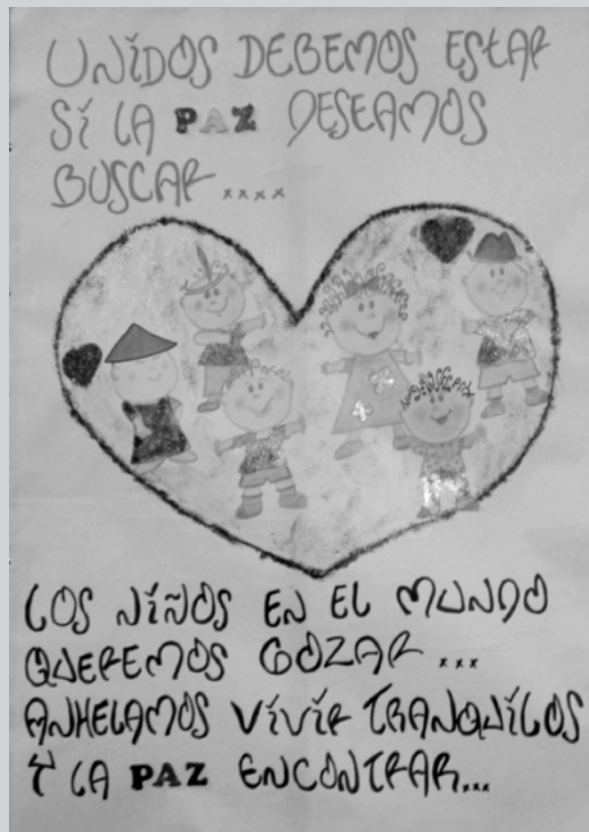 UNÍDOS DEBEMOS ESTAR
SÍ LA PAZ DESEAMOS
BUSCAR....
LOS NÍÑOS EN EL MUNDO
QUEREMOS GOZAR...
ANHELAMOS VÍVÍR TRANQUÍLOS
Y LA PAZ ENCONTRAR...